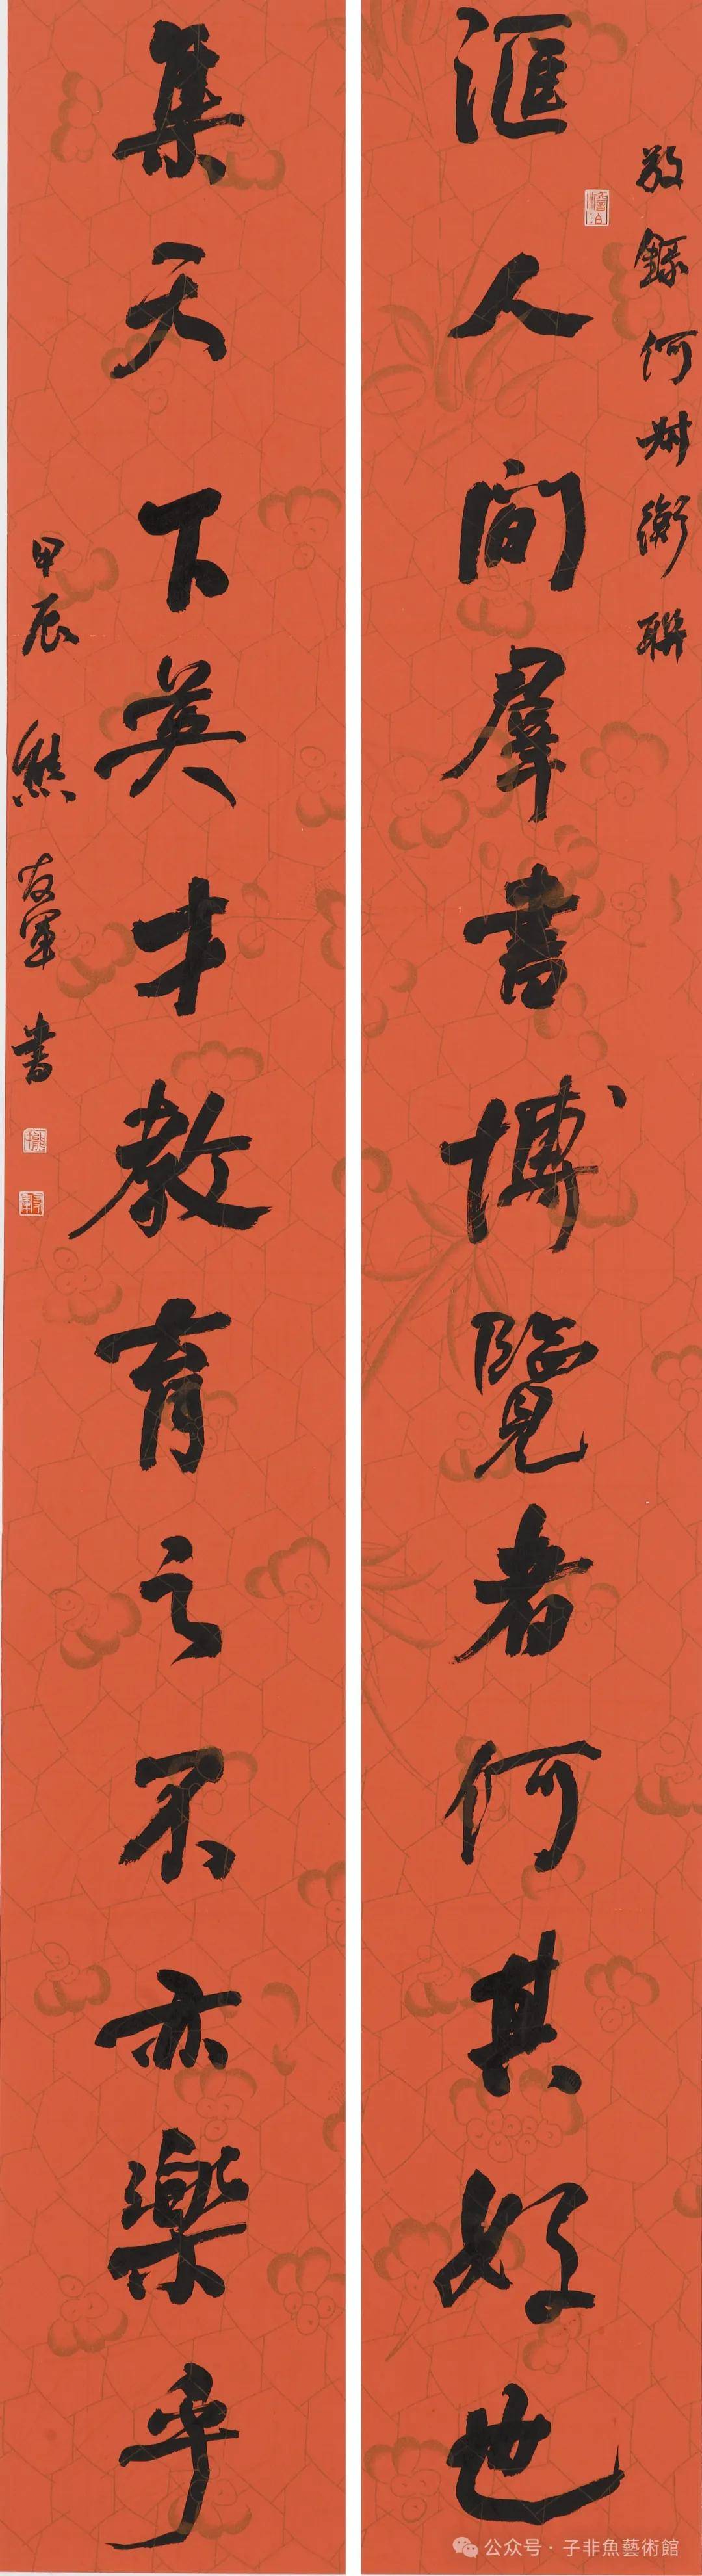 敬錄何叔衡聯
滙人間羣書博覽者何其好也
集天下英才教育之不亦樂乎
甲辰 熊友軍書
公众号·子非魚藝術館